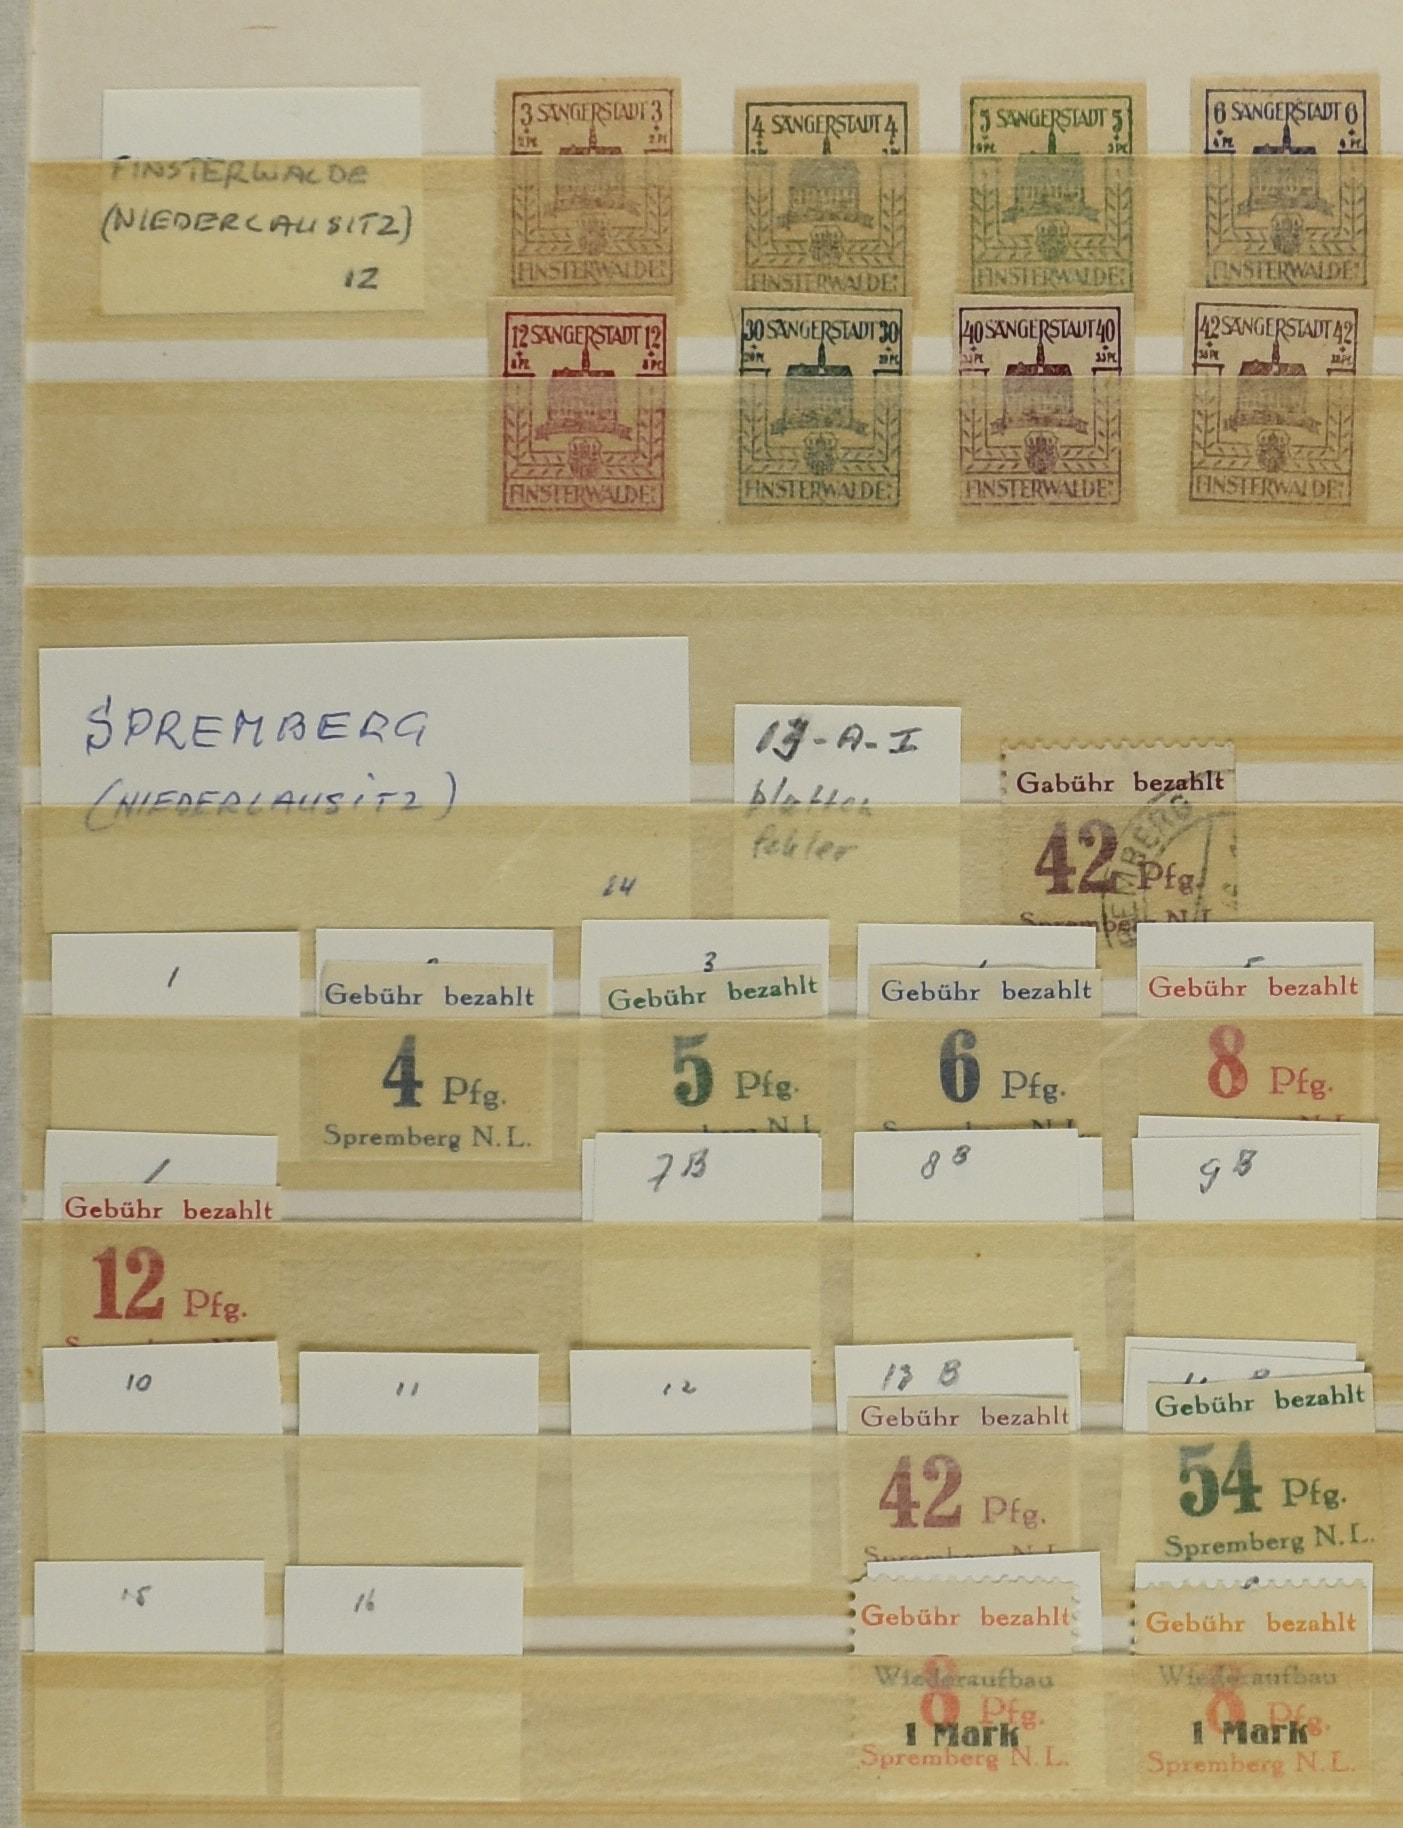 FINSTERWALDE
(NIEDERLAUSITZ)
12
3 SÄNGERSTADT 3
+ +
2 Pf. 2 Pf.
FINSTERWALDE
4 SÄNGERSTADT 4
FINSTERWALDE
5 SÄNGERSTADT 5
FINSTERWALDE
6 SÄNGERSTADT 6
+ +
4 Pf. 4 Pf.
FINSTERWALDE
12 SÄNGERSTADT 12
+ +
8 Pf. 8 Pf.
FINSTERWALDE
30 SÄNGERSTADT 30
+ +
20 Pf. 20 Pf.
FINSTERWALDE
40 SÄNGERSTADT 40
FINSTERWALDE
42 SÄNGERSTADT 42
FINSTERWALDE
SPREMBERG
(NIEDERLAUSITZ)
14
13-A-I
platten
fehler
Gabühr bezahlt
42 Pfg.
Spremberg N.L.
1
Gebühr bezahlt
4 Pfg.
Spremberg N.L.
3
Gebühr bezahlt
5 Pfg.
Gebühr bezahlt
6 Pfg.
Gebühr bezahlt
8 Pfg.
Gebühr bezahlt
12 Pfg.
7 B
8 B
9 B
10
11
12
13 B
Gebühr bezahlt
42 Pfg.
Gebühr bezahlt
54 Pfg.
Spremberg N.L.
15
16
Gebühr bezahlt
Wiederaufbau
8 Pfg.
1 Mark
Spremberg N.L.
Gebühr bezahlt
Wiederaufbau
8 Pfg.
1 Mark
Spremberg N.L.